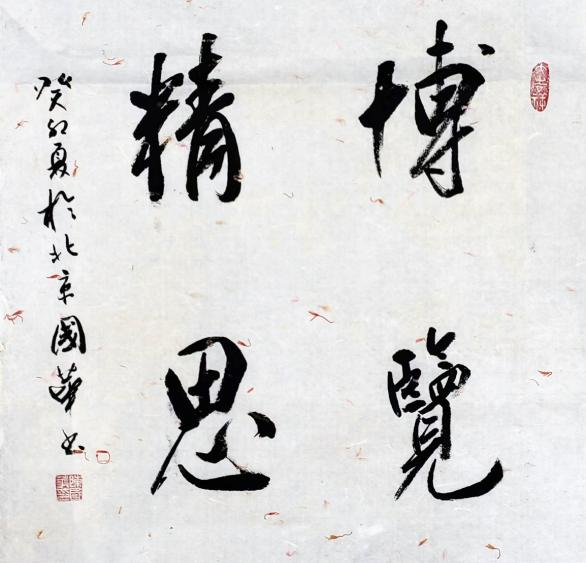 博覽
精思
癸卯夏於北京國華書